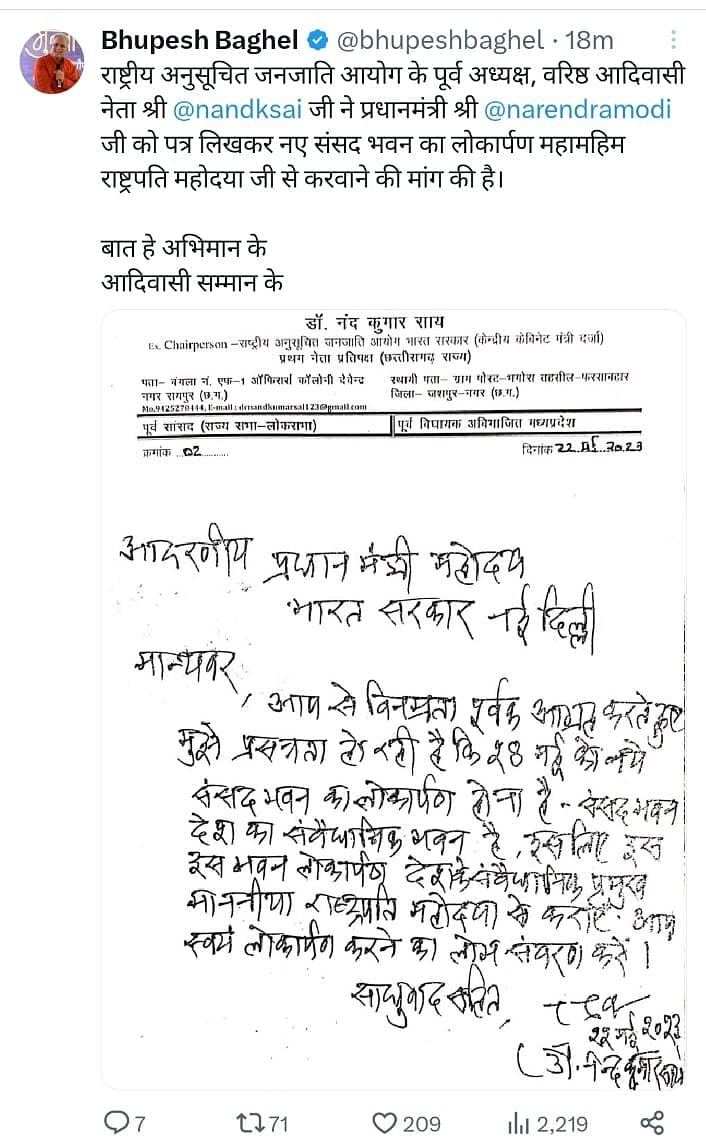 Bhupesh Baghel @bhupeshbaghel · 18m
राष्ट्रीय अनुसूचित जनजाति आयोग के पूर्व अध्यक्ष, वरिष्ठ आदिवासी
नेता श्री @nandksai जी ने प्रधानमंत्री श्री @narendramodi
जी को पत्र लिखकर नए संसद भवन का लोकार्पण महामहिम
राष्ट्रपति महोदया जी से करवाने की मांग की है।
बात हे अभिमान के
आदिवासी सम्मान के
डॉ. नंद कुमार साय
Ex. Chairperson –राष्ट्रीय अनुसूचित जनजाति आयोग भारत सरकार (केन्द्रीय केबिनेट मंत्री दर्जा)
प्रथम नेता प्रतिपक्ष (छत्तीसगढ़ राज्य)
पता– बंगला नं. एफ–1 ऑफिसर्स कॉलोनी देवेन्द्र
नगर रायपुर (छ.ग.)
Mo.9425270444, E-mail :
स्थायी पता– ग्राम पोस्ट–भगोरा तहसील–फरसाबहार
जिला– जशपुर–नगर (छ.ग.)
पूर्व सांसद (राज्य सभा–लोकसभा)
पूर्व विधायक अविभाजित मध्यप्रदेश
क्रमांक ..02..........
दिनांक 22.मई..2023
आदरणीय प्रधान मंत्री महोदय
भारत सरकार नई दिल्ली
मान्यवर,
आप से विनम्रता पूर्वक आग्रह करते हुए
मुझे प्रसन्नता हो रही है कि २८ मई को नये
संसद भवन का लोकार्पण होना है - संसद भवन
देश का संवैधानिक भवन है, इसलिए इस
इस भवन लोकार्पण देश के संवैधानिक प्रमुख
माननीया राष्ट्रपति महोदया से कराएं. आप
स्वयं लोकार्पण करने का लोभ संवरण करें।
साधुवाद सहित,
२२ मई २०२३
(डॉ. नन्द कुमार साय
7 71 209 2,219